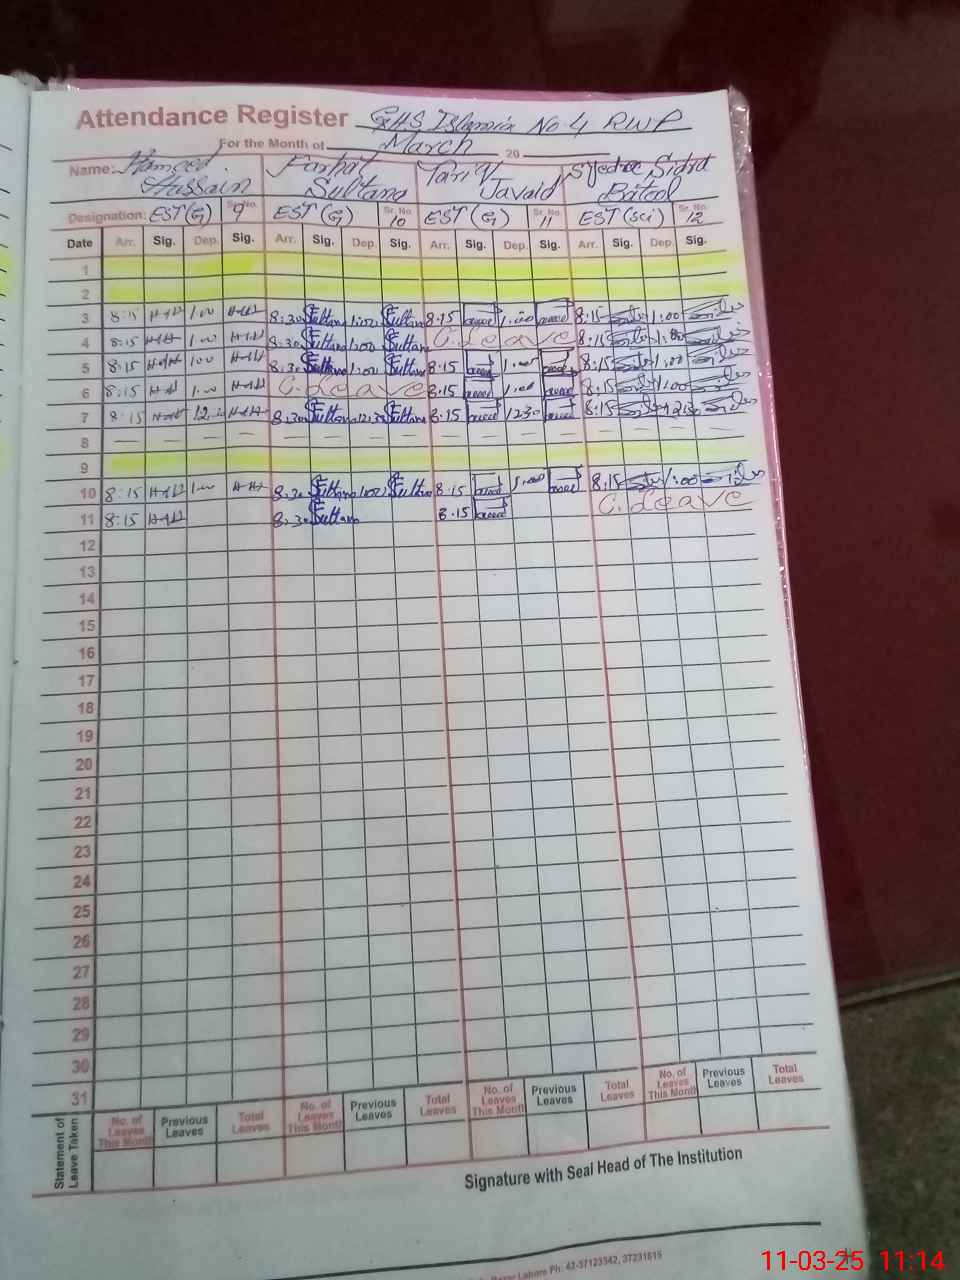 Attendance Register GHS Islamia No 4 RWP
For the Month of March 20
Name: Hameed Hussain Farhat Sultana Tariq Javaid Syedda Sidra Batool
Designation: EST (G) Sr. No. 9 EST (G) Sr. No. 10 EST (G) Sr. No. 11 EST (Sci) Sr. No. 12
Date Arr. Sig. Dep. Sig. Arr. Sig. Dep. Sig. Arr. Sig. Dep. Sig. Arr. Sig. Dep. Sig.
1
2
3 8:15 1.00 8:30 Sultana 1:00 Sultana 8.15 1.00 8:15 1:00
4 8:15 1.00 8:30 Sultana 1:00 Sultana C. Leave 8:15 1:00
5 8:15 1.00 8:30 Sultana 1:00 Sultana 8.15 1.00 8:15 1:00
6 8:15 1.00 C. Leave 8.15 1.00 8:15 1:00
7 8:15 12.30 8:30 Sultana 12:30 Sultana 8.15 1230 8:15 1230
8
9
10 8:15 1.00 8:30 Sultana 1:00 Sultana 8.15 1.00 8:15 1:00
11 8:15 8:30 Sultana 8.15 C. Leave
12
13
14
15
16
17
18
19
20
21
22
23
24
25
26
27
28
29
30
31
Statement of Leave Taken No. of Leaves This Month Previous Leaves Total Leaves No. of Leaves This Month Previous Leaves Total Leaves No. of Leaves This Month Previous Leaves Total Leaves No. of Leaves This Month Previous Leaves Total Leaves
Signature with Seal Head of The Institution
Bazar Lahore Ph: 42-37123342, 37231615
11-03-25 11:14